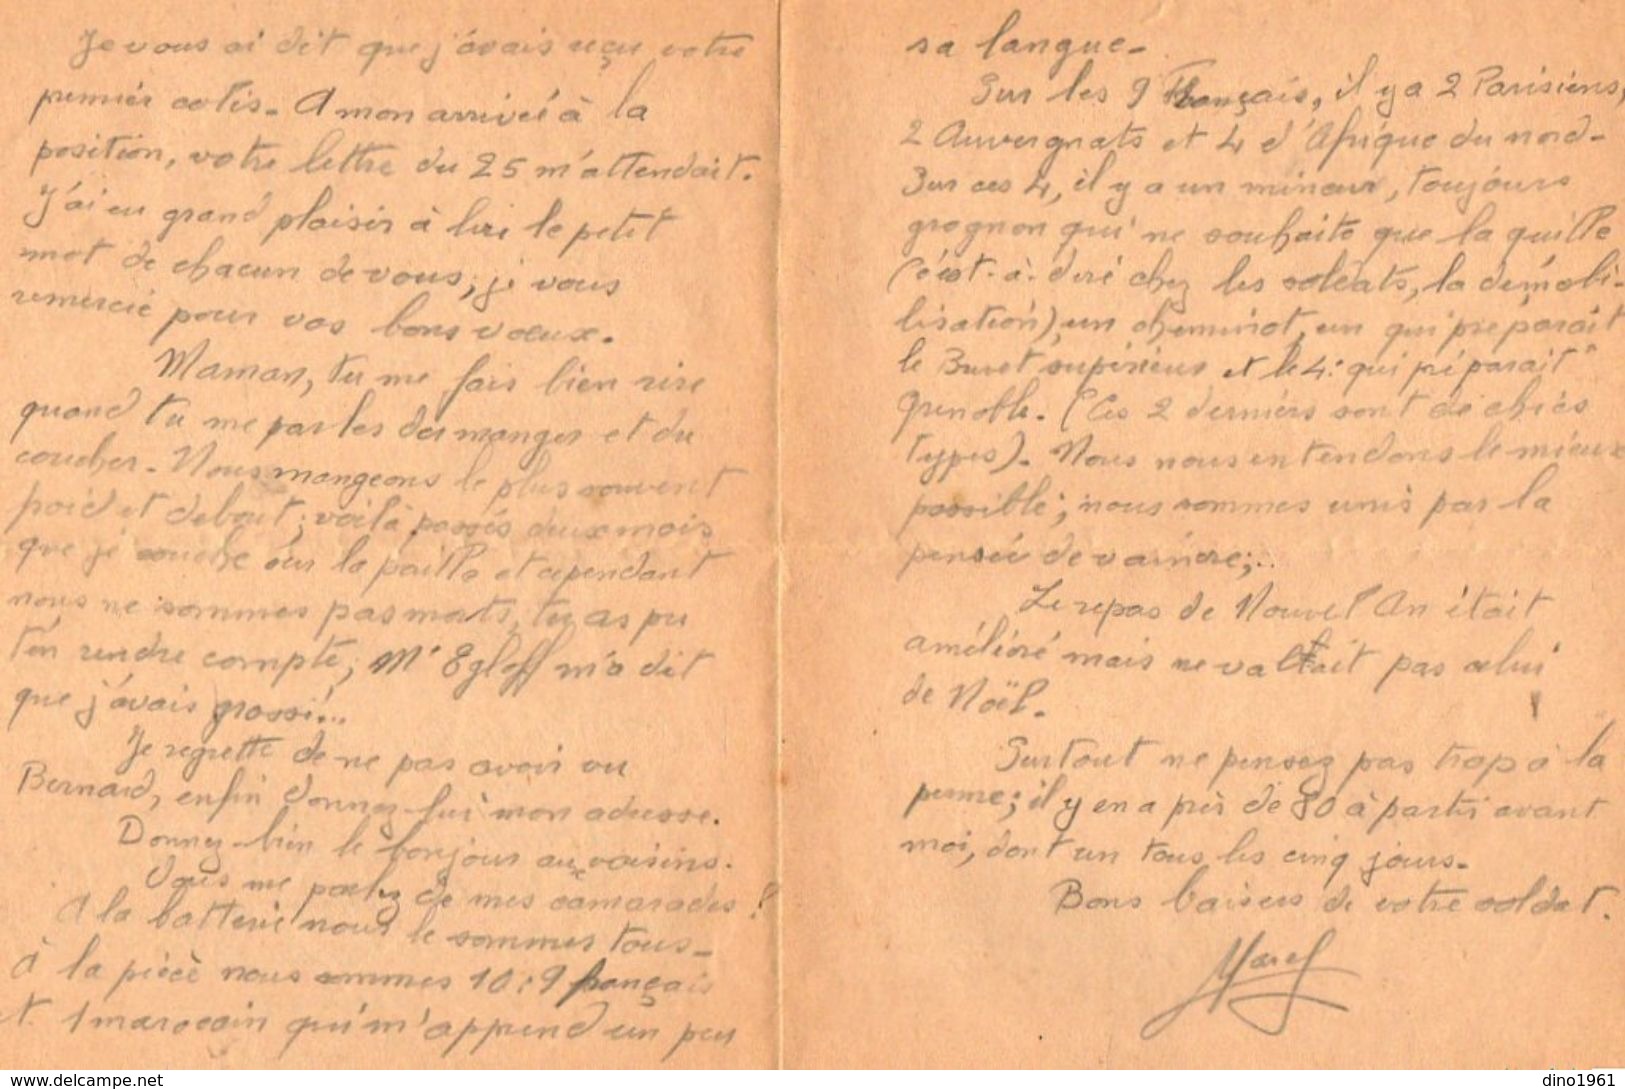 Je vous ai dit que j'avais reçu votre
premier colis. A mon arrivée à la
position, votre lettre du 25 m'attendait.
J'ai eu grand plaisir à lire le petit
mot de chacun de vous; je vous
remercie pour vos bons voeux.
Maman, tu me fais bien rire
quand tu me parles des manger et du
coucher. Nous mangeons le plus souvent
froid et debout; voilà passés deux mois
que je couche sur la paille et cependant
nous ne sommes pas morts, tu as pu
t'en rendre compte; Mr Egloff m'a dit
que j'avais grossi...
Je regrette de ne pas avoir vu
Bernard, enfin donnez-lui mon adresse.
Donnez bien le bonjour aux voisins.
Vous me parlez de mes camarades?
A la batterie nous le sommes tous-
A la pièce nous sommes 10: 9 français
et 1 marocain qui m'apprend un peu
sa langue-
Sur les 9 Français, il y a 2 Parisiens,
2 Auvergnats et 4 d'Afrique du nord-
Sur ces 4, il y a un mineur, toujours
grognon qui ne souhaite que la quille
(c'est-à-dire chez les soldats, la démobi-
lisation), un cheminot, un qui préparait
le Brevet supérieur et le 4e qui préparait
Grenoble. (Ces 2 derniers sont de chics
types). Nous nous entendons le mieux
possible; nous sommes unis par la
pensée de vaincre;..
Le repas de Nouvel An était
amélioré mais ne valait pas celui
de Noël.
Surtout ne pensez pas trop à la
perme; il y en a près de 80 à partir avant
moi, dont un tous les cinq jours.
Bons baisers de votre soldat.
Marcel
dino1961
delcampe.net